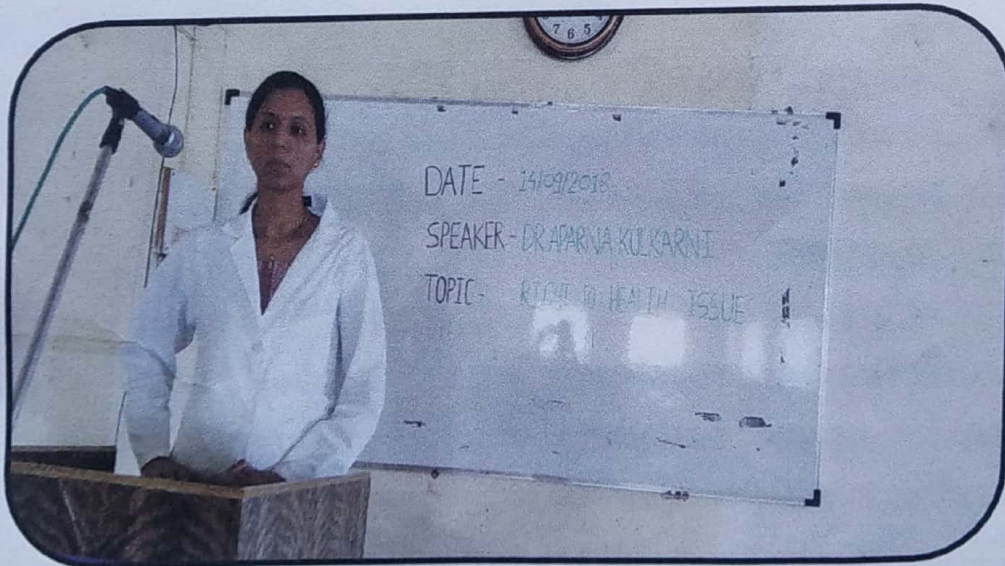 7 6 5
DATE - 14/09/2018
SPEAKER - DR APARNA KULKARNI
TOPIC - RIGHT TO HEALTH ISSUE